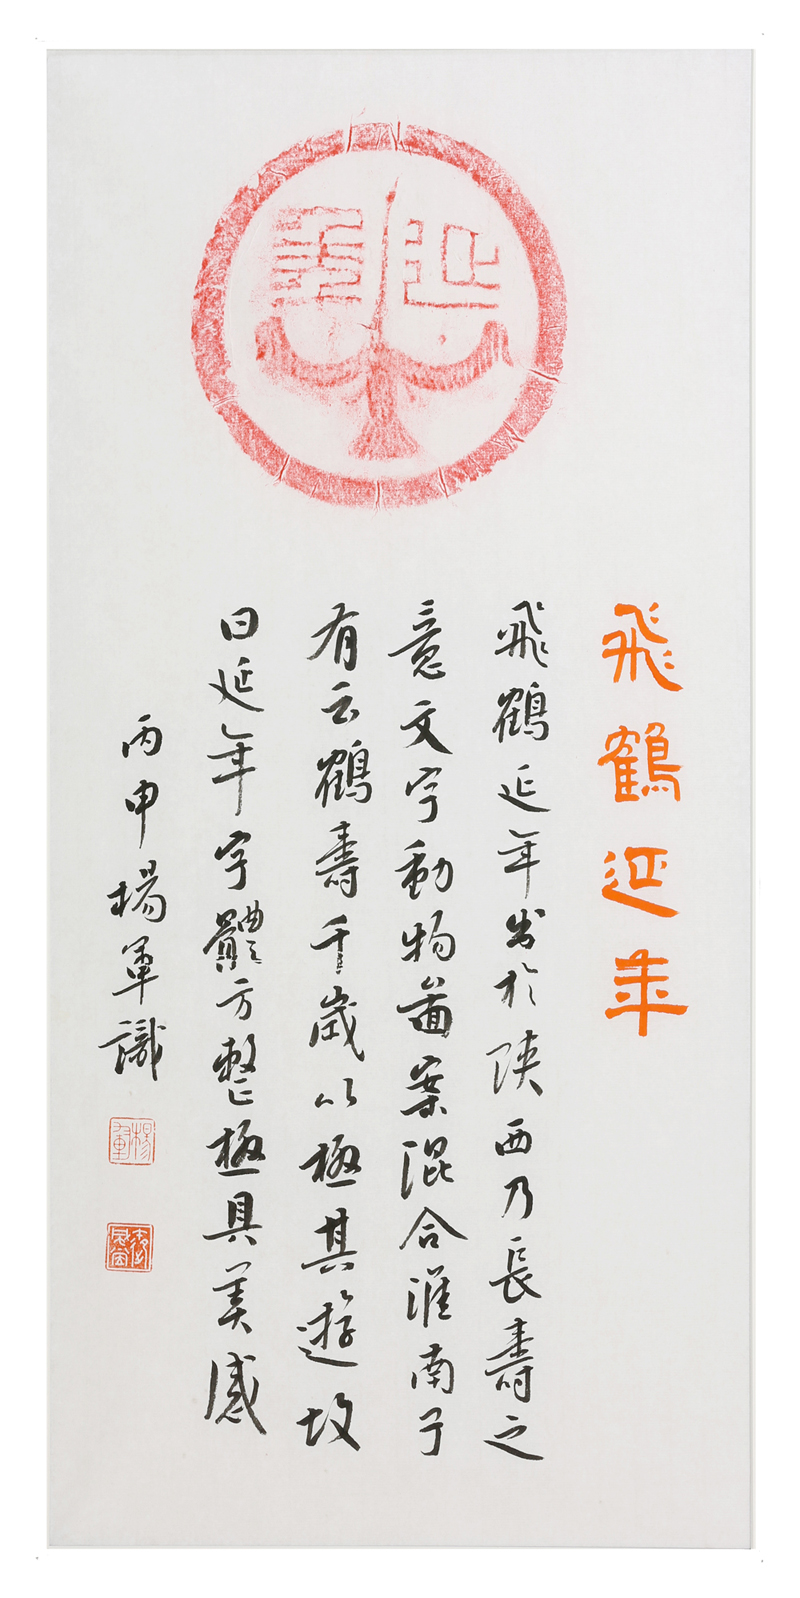 延年
飛鶴延年
飛鶴延年出於陝西乃長壽之
意文字動物圖案混合淮南子
有云鶴壽千歲以極其遊故
曰延年字體方整極具美感
丙申楊軍識
楊軍